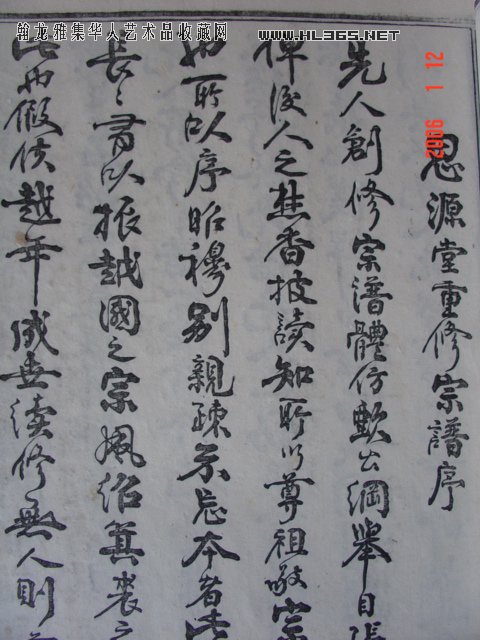 翰龙雅集华人艺术品收藏网
www.HL365.NET
2006 1 12
思源堂重修宗譜序
先人創修宗譜體仿歐公綱舉目張
俾後人之焚香披讀知所以尊祖敬宗
也所以序昭穆別親疎示忘本者此
長之書以振越國之宗風紹箕裘之
此也假使越年
無續修無人則